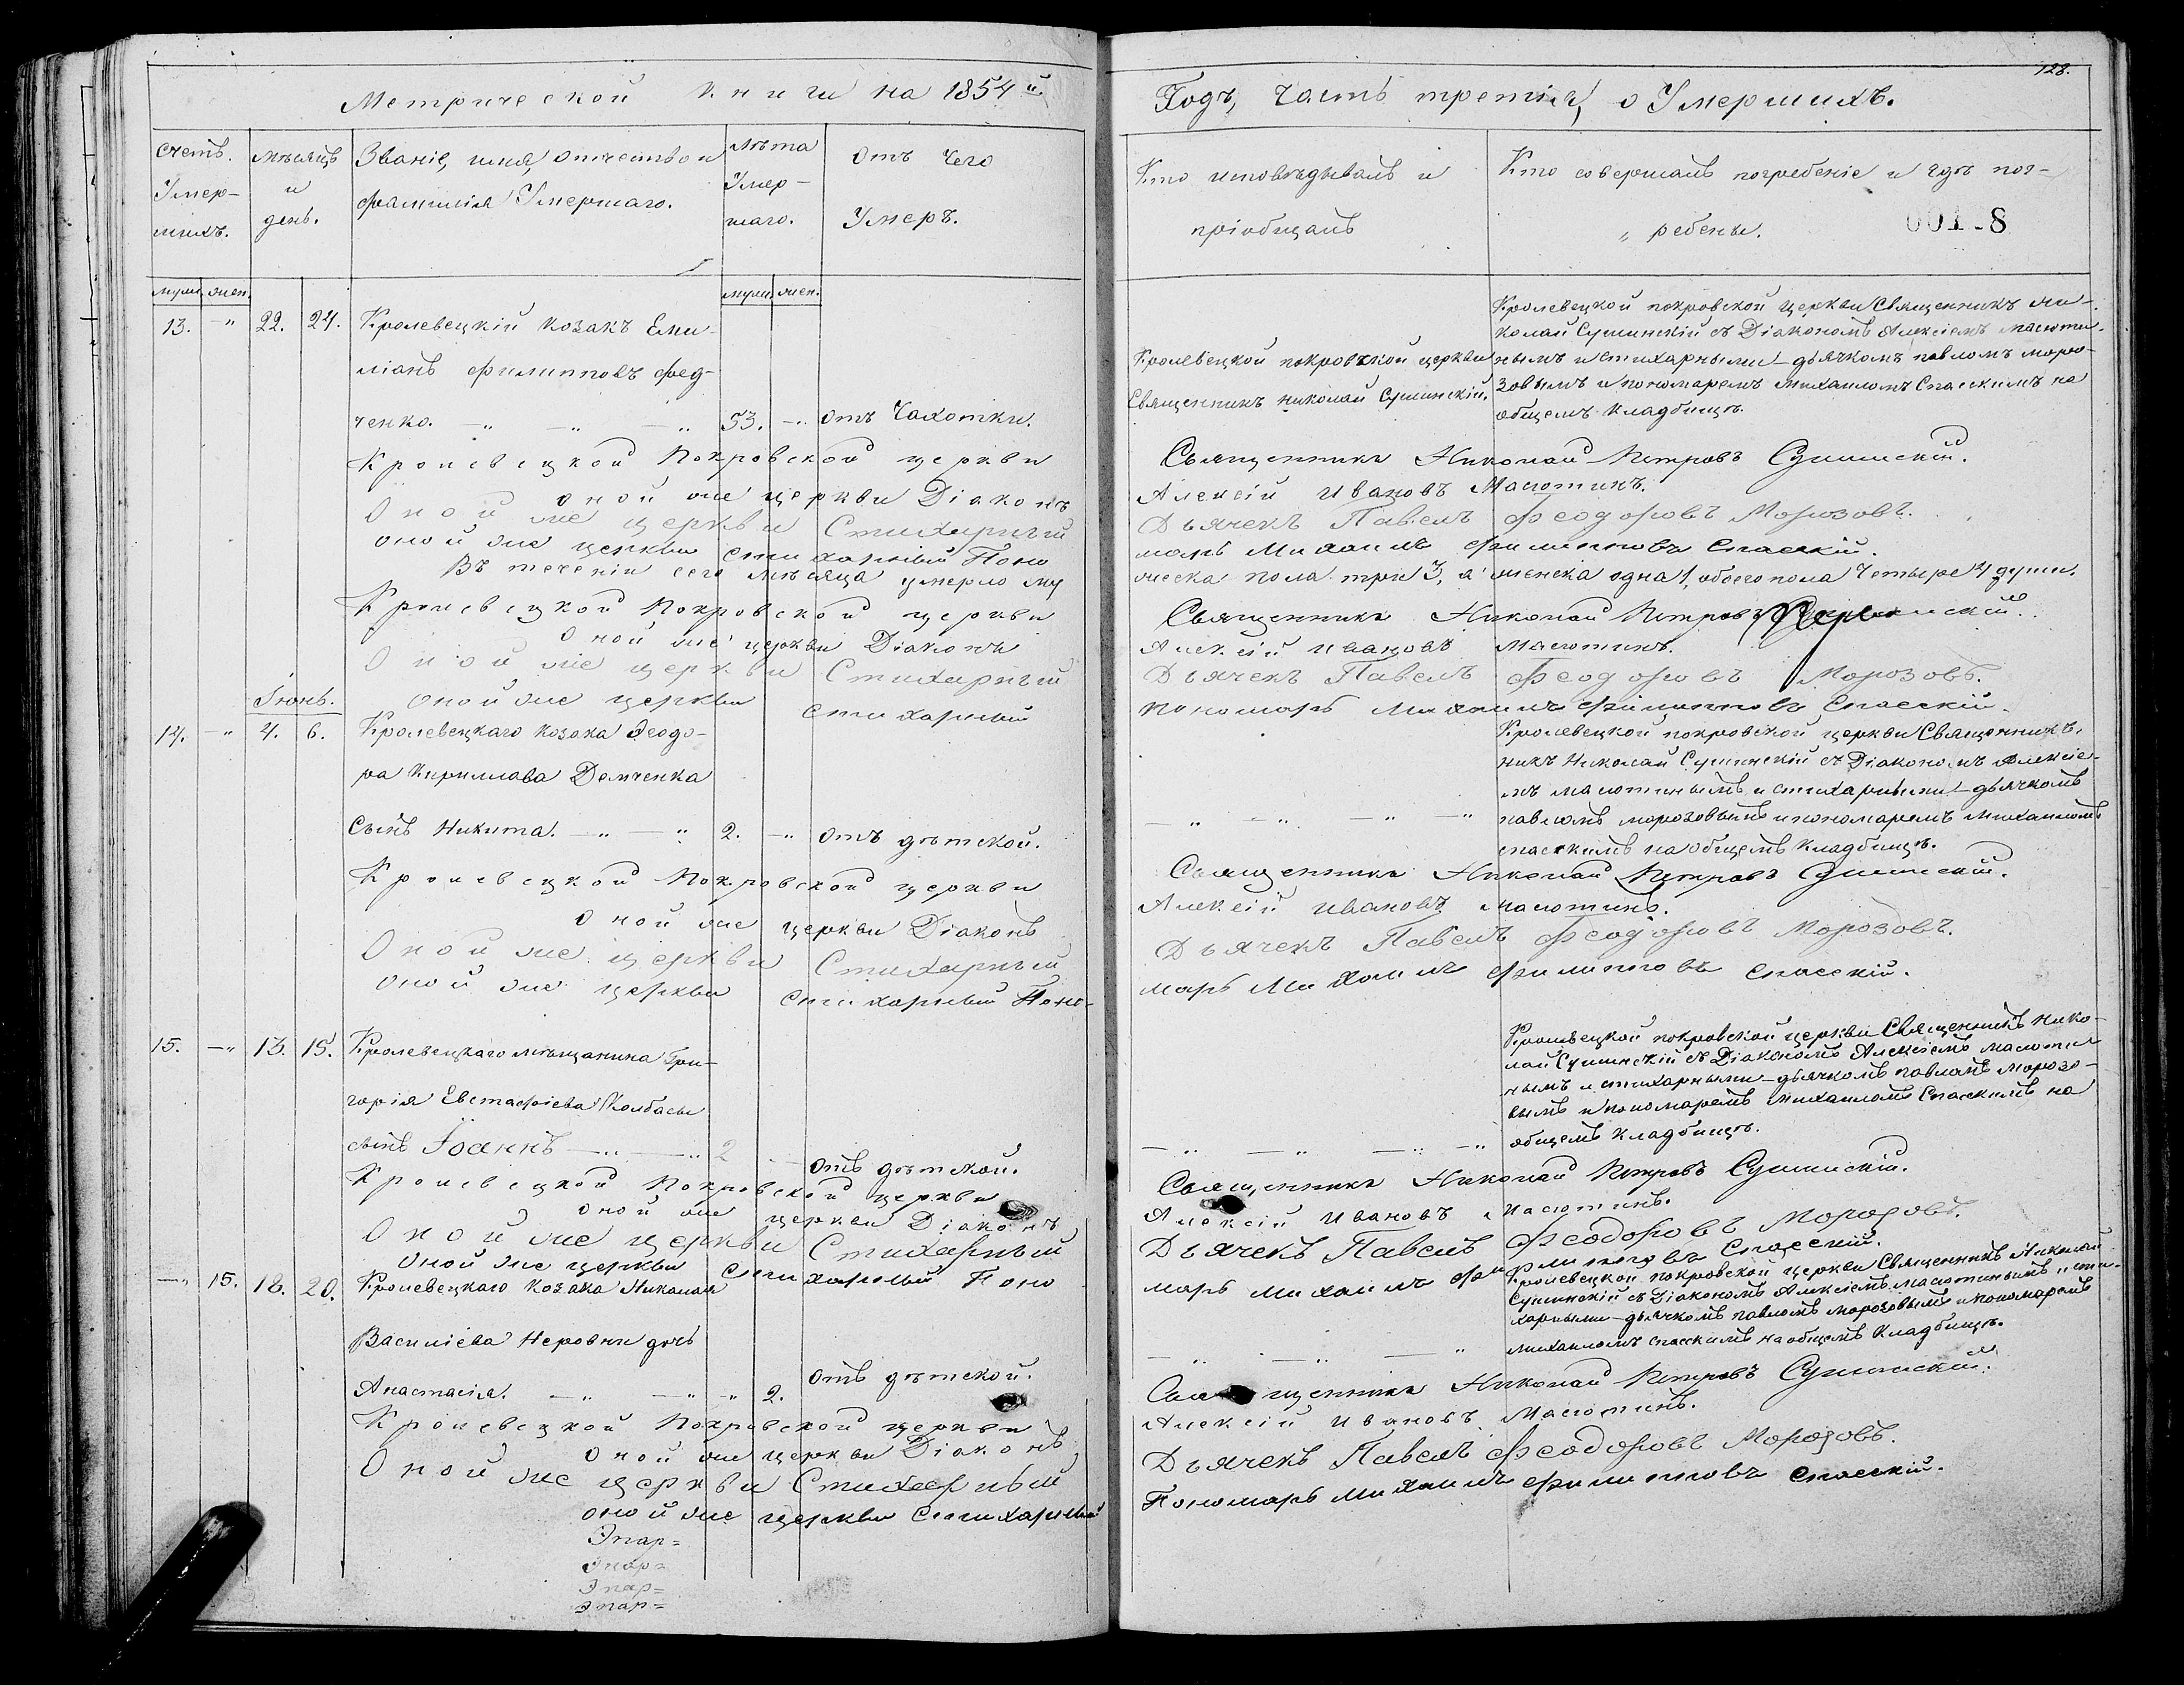 128.
Метрической книги на 1854й.
Годъ, Часть третія, о Умершихъ.
Счетъ Умер-
шихъ.
Мѣсяцъ
и
день.
Званіе, имя, отчество и
фамилія Умершаго.
Лѣта
Умер-
шаго.
Отъ чего
Умеръ.
Кто исповѣдывалъ и
пріобщалъ
Кто совершалъ погребеніе и гдѣ пог-
„ ребены.
муж. жен.
муж. жен.
13. -„ 22. 24. Кролевецкій козакъ Еми-
ліанъ Филипповъ Фед-
ченко. -„ -„ -„ 53. -„ отъ Чахотки.
Кролевецкой покровской церкви
Священникъ Николай Сушинскій.
Кролевецкой покровской церкви Священникъ Ни-
колай Сушинскій съ Діакономъ Алексіемъ Масюти-
нымъ и стихарными - дьячкомъ павломъ моро-
зовымъ и пономаремъ михаиломъ Спасскимъ на
общемъ кладбищѣ.
Кролевецкой Покровской церкви Священникъ Николай Петровъ Сушинскій.
Оной же церкви Діаконъ Алексій Ивановъ Масютинъ.
Оной же церкви Стихарный Дьячекъ Павелъ Феодоровъ Морозовъ.
оной же церкви стихарный Поно
марь Михаилъ Филипповъ Спасскій.
Въ теченіи сего мѣсяца умерло му
жеска пола три 3, а женска одна 1, обоего пола Четыре 4 души.
Кролевецкой Покровской церкви Священникъ Николай Петровъ
Оной же церкви Діаконъ Алексій Ивановъ Масютинъ.
Оной же церкви Стихарный Дьячекъ Павелъ Феодоровъ Морозовъ.
оной же церкви стихарный пономарь Михаилъ Филипповъ Спасскій.
Іюнь.
14. -„ 4. 6. Кролевецкаго козака Феодо-
ра Кириллова Демченка
Сынъ Никита. -„ -„ 2. -„ отъ дѣтской.
-„ -„ -„ -„
Кролевецкой покровской церкви Священникъ,
никъ Николай Сушинскій съ Діакономъ Алексіе-
мъ масютинымъ и стихарными - дьячкомъ
павломъ морозовымъ и пономаремъ Михаиломъ
спасскимъ на общемъ кладбищѣ.
Кролевецкой Покровской церкви Священникъ Николай Петровъ Сушинскій.
Оной же церкви Діаконъ Алексій Ивановъ Масютинъ.
Оной же церкви Стихарный Дьячекъ Павелъ Феодоровъ Морозовъ.
оной же церкви стихарный Поно-
марь Михаилъ Филипповъ Спасскій.
15. -„ 13. 15. Кролевецкаго мѣщанина Гри-
горія Евстафіева Колбасы
сынъ Іоаннъ -„ -„ 2 отъ дѣтской.
-„ -„ -„ -„
Кролевецкой покровской церкви Священникъ Нико-
лай Сушинскій съ Діакономъ Алексіемъ масюти-
нымъ и стихарными - дьячкомъ павломъ морозо-
вымъ и пономаремъ михаиломъ Спасскимъ на
общемъ кладбищѣ.
Кролевецкой Покровской церкви Священникъ Николай Петровъ Сушинскій.
Оной же церкви Діаконъ Алексій Ивановъ Масютинъ.
Оной же церкви Стихарный Дьячекъ Павелъ Феодоровъ Морозовъ.
оной же церкви стихарный Поно
марь Михаилъ Филипповъ Спасскій.
-„ 15. 18. 20. Кролевецкаго козака Николая
Василіева Неровни дочь
Анастасія. -„ -„ -„ 2. отъ дѣтской.
-„ -„ -„
Кролевецкой покровской церкви Священникъ Николай
Сушинскій съ Діакономъ Алексіемъ масютинымъ и сти-
харными - дьячкомъ павломъ морозовымъ и пономаремъ
михаиломъ спасскимъ на общемъ кладбищѣ.
Кролевецкой Покровской церкви Священникъ Николай Петровъ Сушинскій.
Оной же церкви Діаконъ Алексій Ивановъ Масютинъ.
Оной же церкви Стихарный Дьячекъ Павелъ Феодоровъ Морозовъ.
оной же церкви стихарный Пономарь Михаилъ Филипповъ Спасскій.